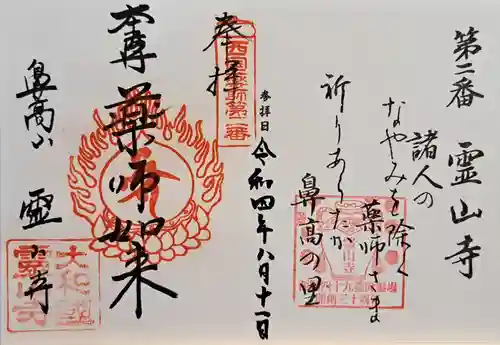 第二番 霊山寺
諸人の
なやみを除く
薬師さま
祈りあらたか
鼻高の里
参拝日 令和四年八月十一日
奉拝
西国薬師第二番
本尊 薬師如来
鼻高山 霊山寺
大和國